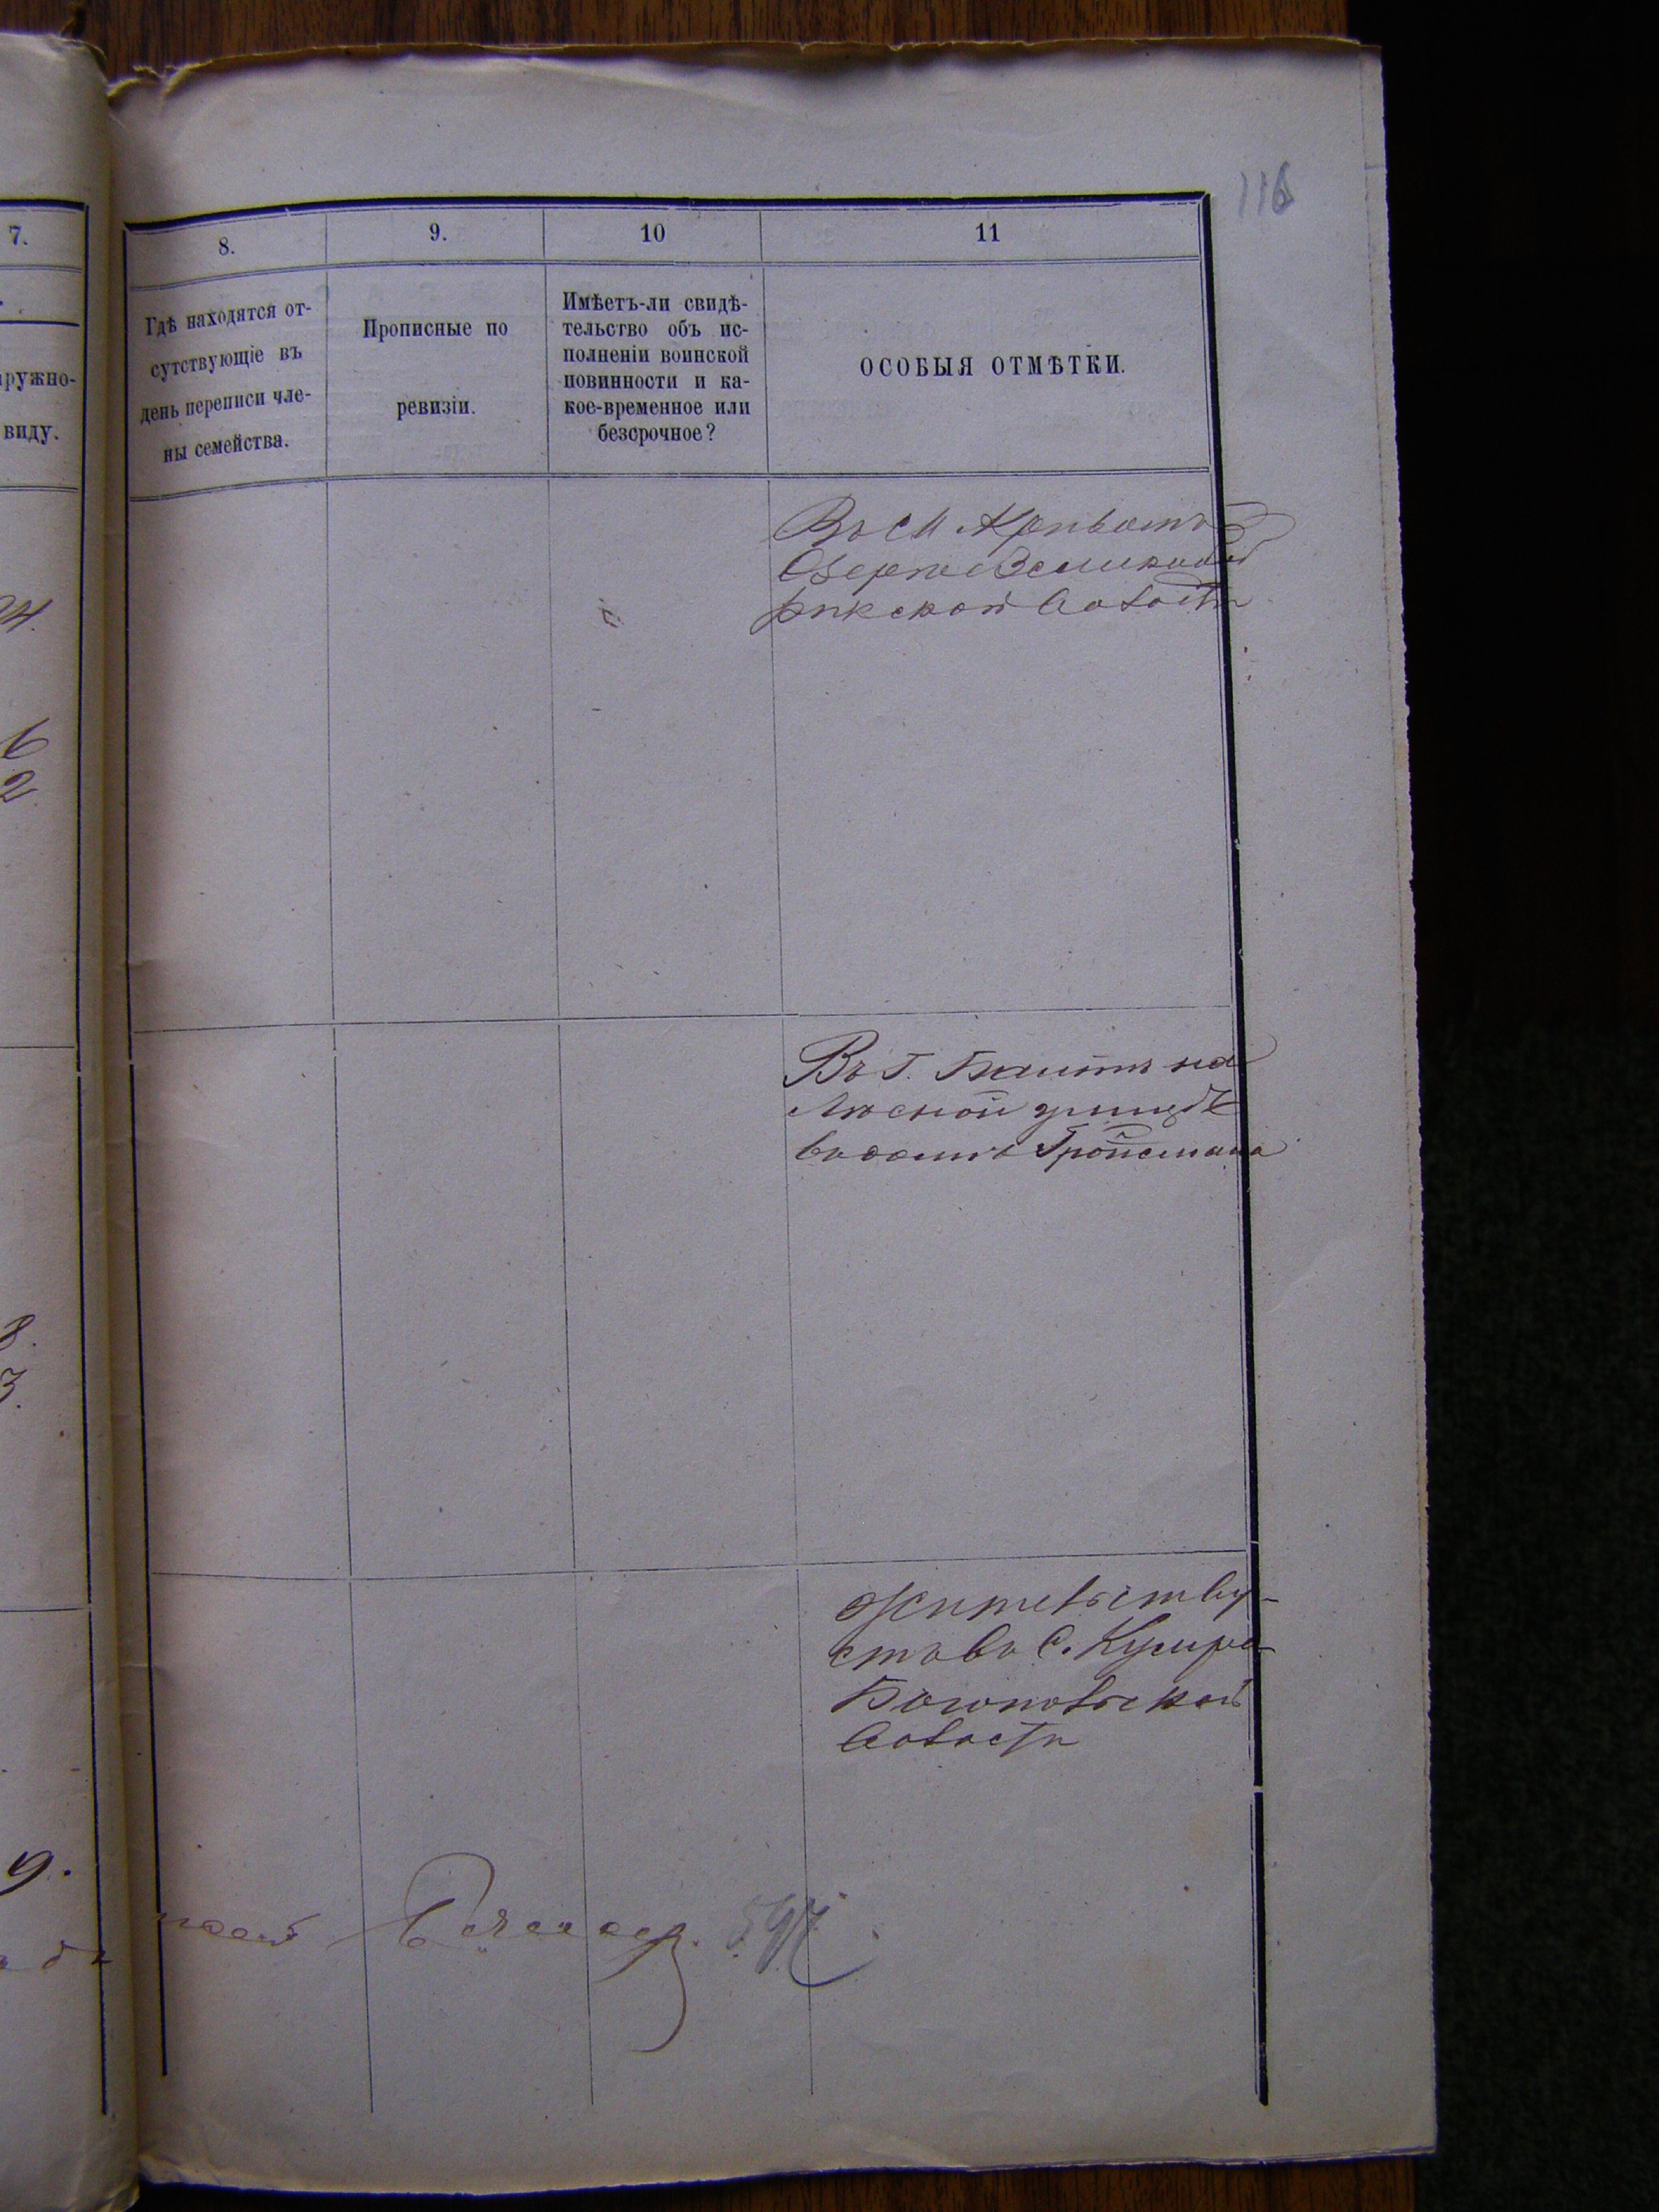 116
7.
8.
9.
10
11
аружно-
виду.
Гдѣ находятся от-
сутствующіе въ
день переписи чле-
ны семейства.
Прописные по
ревизіи.
Имѣетъ-ли свидѣ-
тельство объ ис-
полненіи воинской
повинности и ка-
кое-временное или
безсрочное?
ОСОБЫЯ ОТМѢТКИ.
Въ М. Кривомъ
Озерѣ
волости
6
2
Въ Г. Балтѣ на
улицѣ
въ домѣ Тройсмана
8.
3.
Жительству
етъ въ С.
волости
9.